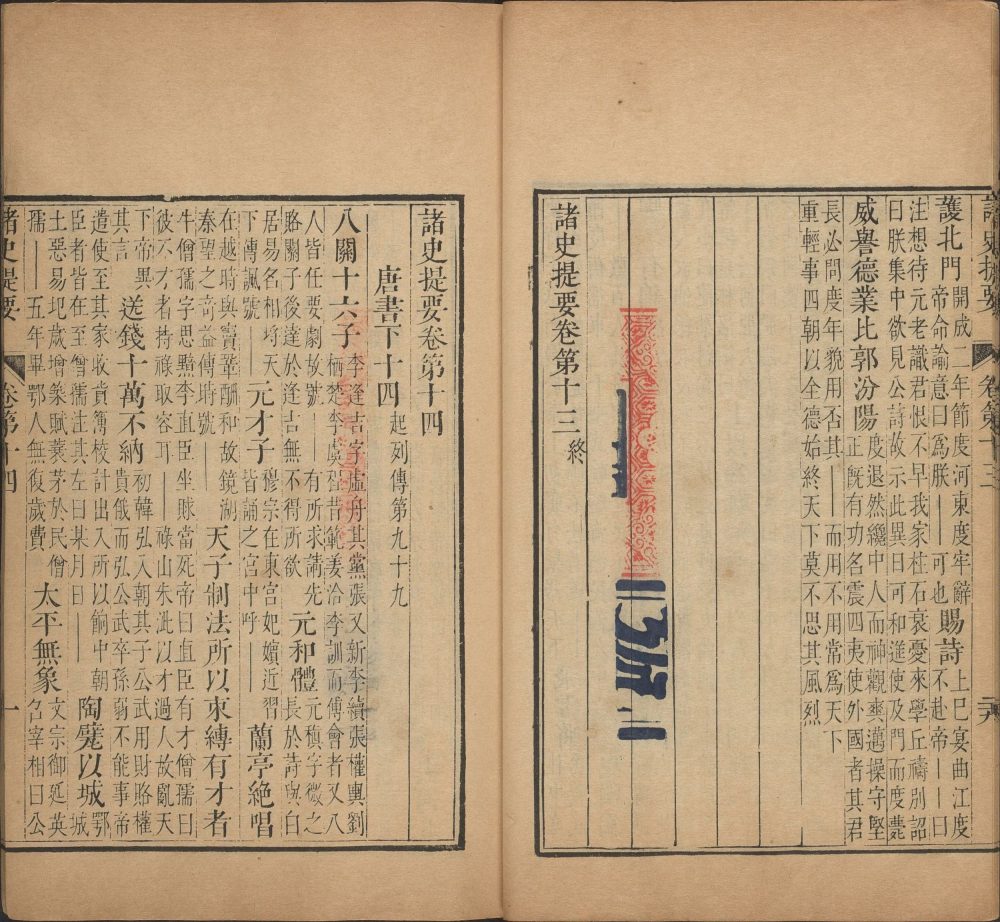 諸史提要 卷第十三 二六
護北門 開成二年節度河東度牢辭
帝命諭意曰爲朕——可也
賜詩 上巳宴曲江度
不赴帝——曰
注想待元老識君恨不早我家柱石衰憂來學丘禱別詔
曰朕集中欲見公詩故示此異日可和進使及門而度薨
威譽德業比郭汾陽 度退然纔中人而神觀爽邁操守堅
正既有功名震四夷使外國者其君
長必問度年貌用否其——而用不用常爲天下
重輕事四朝以全德始終天下莫不思其風烈
諸史提要卷第十三 終
諸史提要卷第十四
唐書下十四 起列傳第九十九
八關十六子 李逢吉字虛舟其黨張又新李續張權輿劉
栖楚李虞程昔範姜洽李訓而傅會者又八
人皆任要劇故號——有所求請先
賂關子後達於逢吉無不得所欲
元和體 元稹字微之
長於詩與白
居易名相埒天
下傳諷號——
元才子 穆宗在東宮妃嬪近習
皆誦之宮中呼——
蘭亭絕唱
在越時與竇鞏酬和故鏡湖
秦望之奇益傳時號——
天子制法所以束縛有才者
牛僧孺字思黯李直臣坐賕當死帝曰直臣有才僧孺曰
彼不才者持祿取容耳——祿山朱泚以才過人故亂天
下帝異
其言
送錢十萬不納 初韓弘入朝其子公武用財賂權
貴俄而弘公武卒孫弱不能事帝
遣使至其家收貲簿校計出入所以餉中朝
臣者皆在至僧孺注其左曰某月日——
陶甓以城 鄂
城
土惡易圮歲增築賦蓑茅於民僧
孺——五年畢鄂人無復歲費
太平無象 文宗御延英
召宰相曰公
諸史提要 卷第十四 一